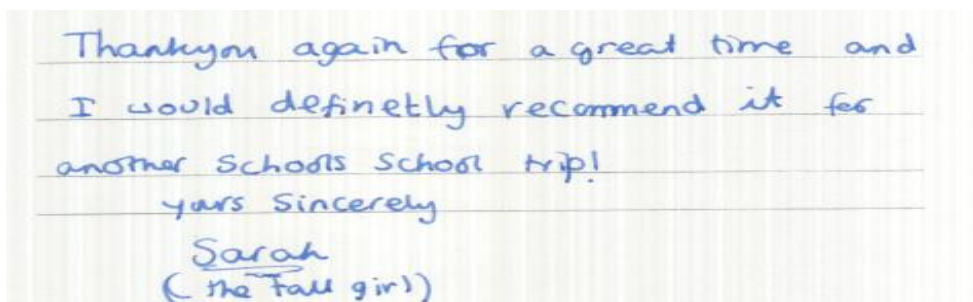 Thankyou again for a great time and
I would definetly recommend it for
another Schools School trip!
yours Sincerely
Sarah
(the tall girl)